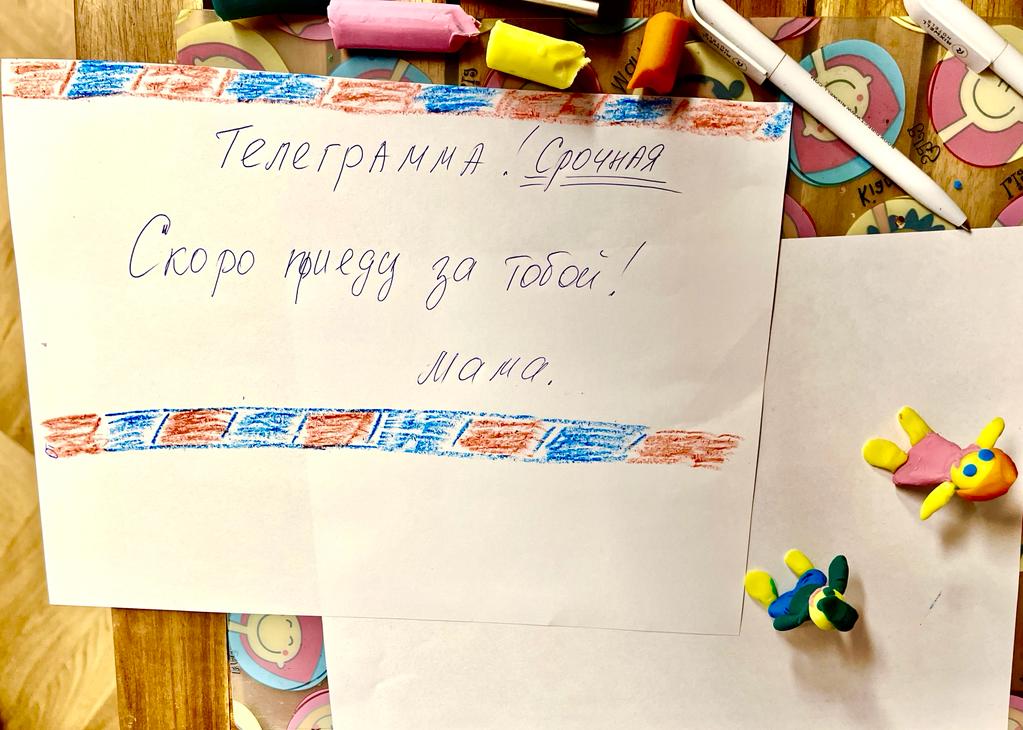 Телеграмма! Срочная
Скоро приеду за тобой!
Мама.